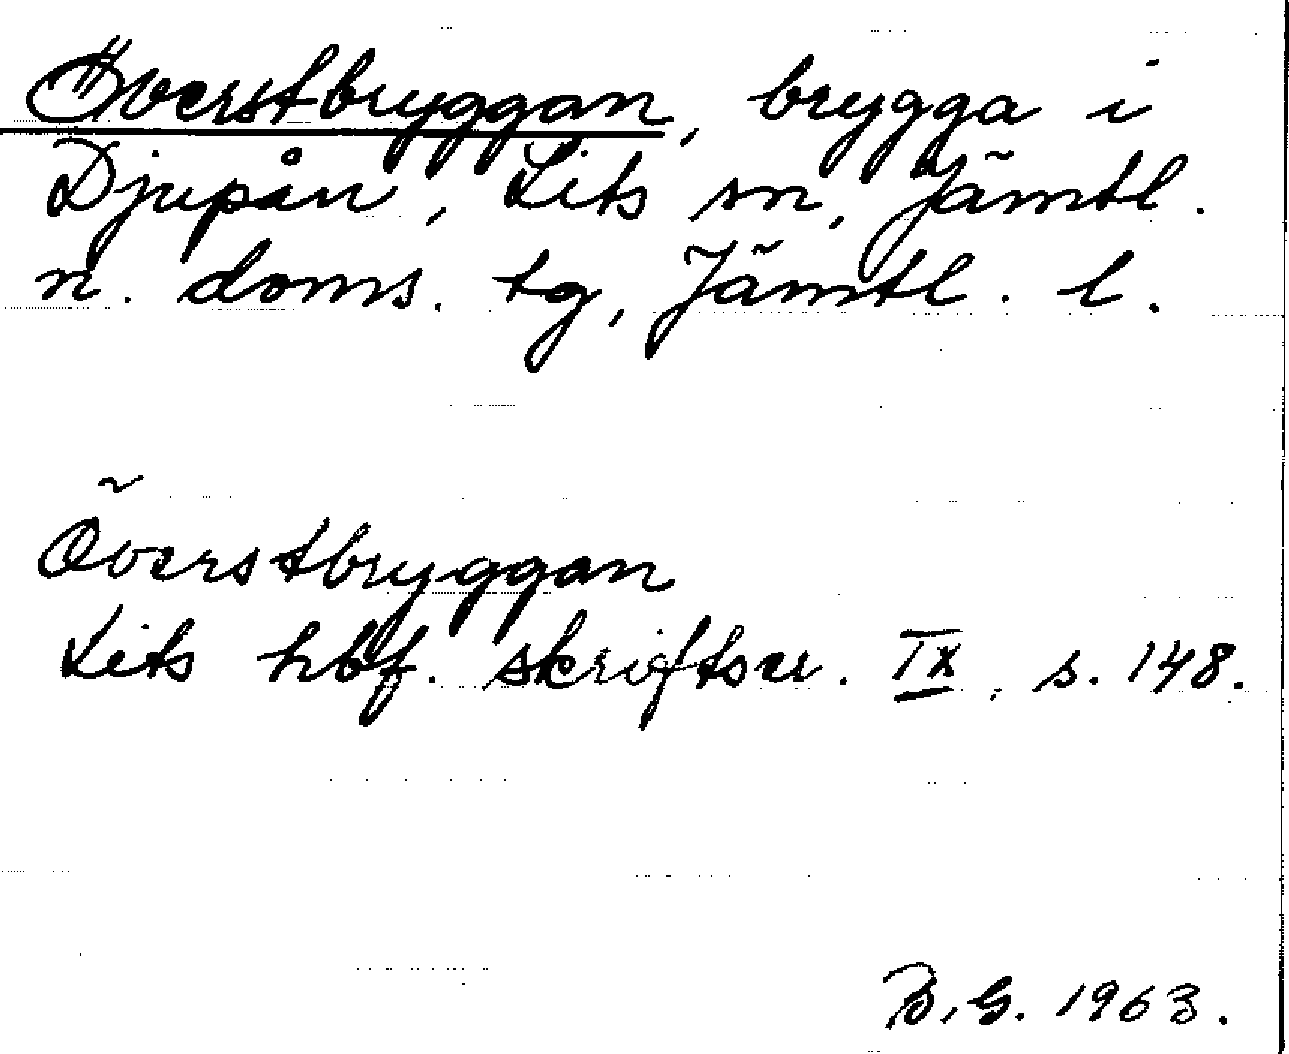 Överstbryggan, brygga i
Djupån, Lits sn, Jämtl.
n. doms. tg, Jämtl. l.
Överstbryggan
Lits hbf. skriftser. IX, s. 148.
B.G. 1963.